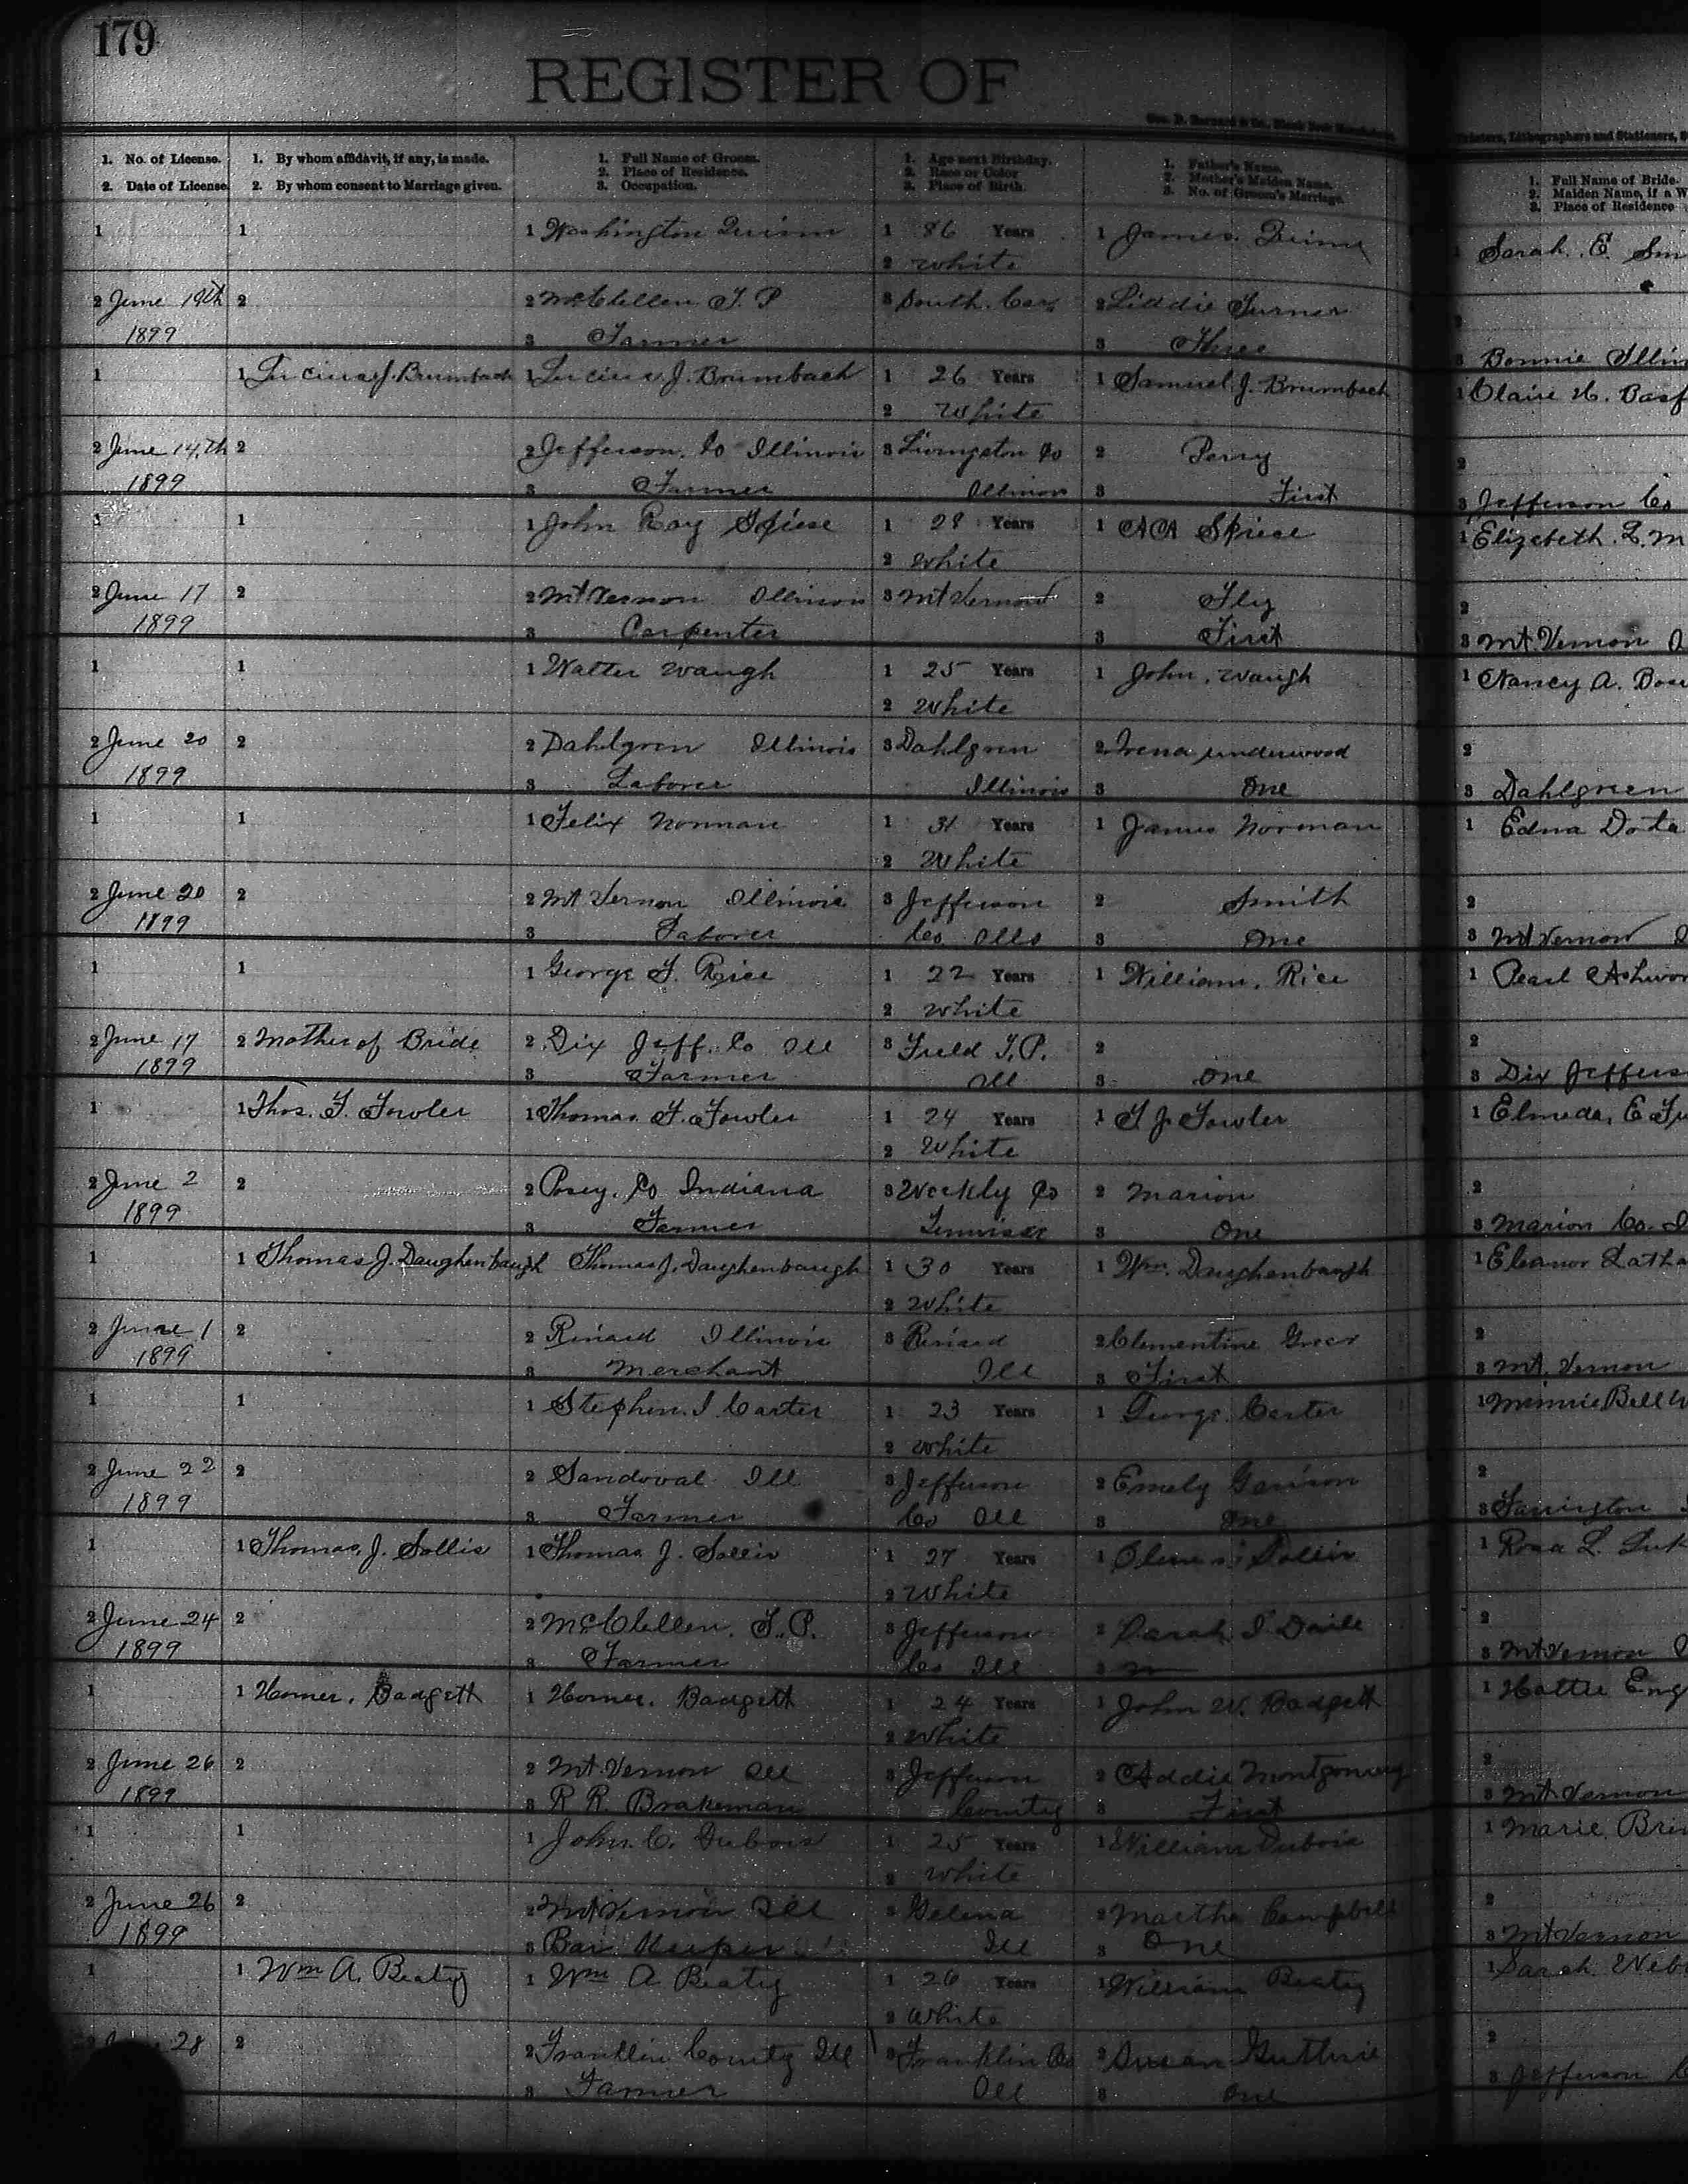 179
REGISTER OF
1. No. of License.
2. Date of License
1. By whom affidavit, if any, is made.
2. By whom consent to Marriage given.
1. Full Name of Groom.
2. Place of Residence.
3. Occupation.
1. Age next Birthday.
2. Race or Color
3. Place of Birth.
1. Father's Name.
2. Mother's Maiden Name.
3. No. of Groom's Marriage.
1. Full Name of Bride.
2. Maiden Name, if a W
3. Place of Residence
1 1 1 Washington 1 86 Years 1 James Sarah. E.
2 White
2 June 2 2 McClellen T. P 3 South. Car 2 Liddie Turner 2
1899 3 Farmer 3 Three 3 Bonnie Illin
1 1 Lucius J. Brumbach 1 Lucius J. Brumbach 1 26 Years 1 Samuel J. Brumbach 1 Claire H.
2 White
2 June 14,th 2 2 Jefferson. Co Illinois 3 Livingston Co 2 Perry 2
1899 3 Farmer Illinois 3 First 3 Jefferson Co
1 1 1 John Ray Spiese 1 28 Years 1 AA Spiece 1 Elizebeth.
2 White
2 June 17 2 2 Mt Vernon Illinois 3 Mt Vernon 2 Fly 2
1899 3 Carpenter 3 First 3 Mt. Vernon
1 1 1 Walter Waugh 1 25 Years 1 John. Waugh 1 Nancy A.
2 White
2 June 20 2 2 Dahlgren Illinois 3 Dahlgren 2 Irena underwood 2
1899 3 Laborer Illinois 3 One 3 Dahlgreen
1 1 1 Felix Norman 1 31 Years 1 James Norman 1 Edna
2 White
2 June 20 2 2 Mt Vernon Illinois 3 Jefferson 2 Smith 2
1899 3 Laborer Co Ills 3 One 3 Mt Vernon
1 1 1 George F. Rice 1 22 Years 1 William. Rice 1 Pearl Ashwor
2 White
2 June 17 2 Mother of Bride 2 Dix Jeff. Co Ill 3 Field T.P. 2 2
1899 3 Farmer Ill 3 One 3 Dix Jeffers
1 1 Thos. F. Fowler 1 Thomas. F. Fowler 1 24 Years 1 T J Fowler 1 Elmeda, E
2 White
2 June 2 2 2 Posey. Co Indiana 3 Weekly Co 2 Marion 2
1899 3 Farmer 3 One 3 Marion Co.
1 1 Thomas J. Daughenbaugh Thomas J. Daughenbaugh 1 30 Years 1 Wm. Daughenbaugh 1 Eleanor Latha
2 White
2 June 1 2 2 Rinard Illinois 3 Rinard 2 Clementine Greer 2
1899 3 Merchant Ill 3 First 3 Mt. Vernon
1 1 1 Stephen. I. Carter 1 23 Years 1 George. Carter 1 Minnie Bell
2 White
2 June 22 2 2 Sandoval Ill 3 Jefferson 2 Emely Garison 2
1899 3 Farmer Co Ill 3 One 3 Farrington
1 1 Thomas. J. Sollis 1 Thomas J. Sollis 1 27 Years 1 Sollis 1 Rosa L.
2 White
2 June 24 2 2 McClellen. T.P. 3 Jefferson 2 Sarah 2
1899 3 Farmer Co Ill 3 3 Mt Vernon
1 1 Homer. Badgett 1 Homer. Badgett 1 24 Years 1 John W. Badgett 1 Hattie Eng
2 White
2 June 26 2 2 Mt Vernon Ill 3 Jefferson 2 Addie Montgomery 2
1899 3 R R. Brakeman County 3 First 3 Mt Vernon
1 1 1 John. C. Dubois 1 25 Years 1 William Dubois 1 Marie
2 White
2 June 26 2 2 Mt Vernon Ill 3 Galena 2 Martha Campbell 2
1899 3 Bar Keeper Ill 3 One 3 Mt Vernon
1 1 Wm A. Beaty 1 Wm A Beaty 1 26 Years 1 William Beaty 1 Sarah
2 White
28 2 2 Franklin County Ill 3 Franklin Co 2 Susan Guthrie 2
3 Farmer Ill 3 One 3 Jefferson